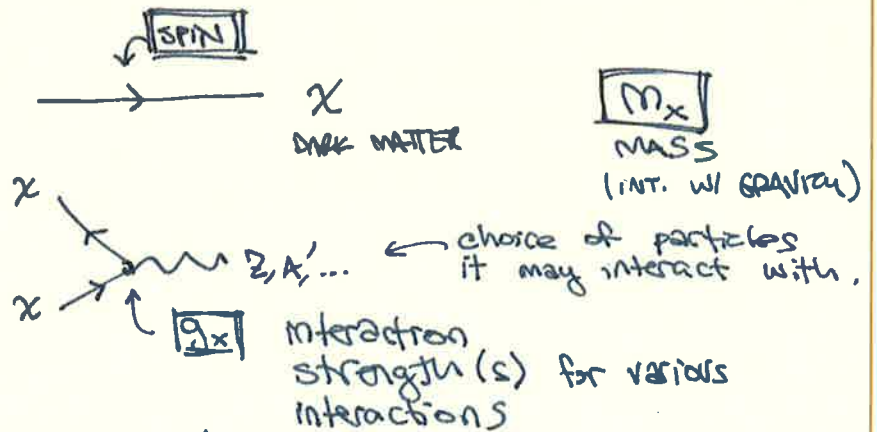 SPIN
χ
DARK MATTER
mχ
MASS
(INT. W/ GRAVITY)
χ
χ
Z, A', ...
choice of particles
it may interact with.
gχ
interaction
strength(s) for various
interactions